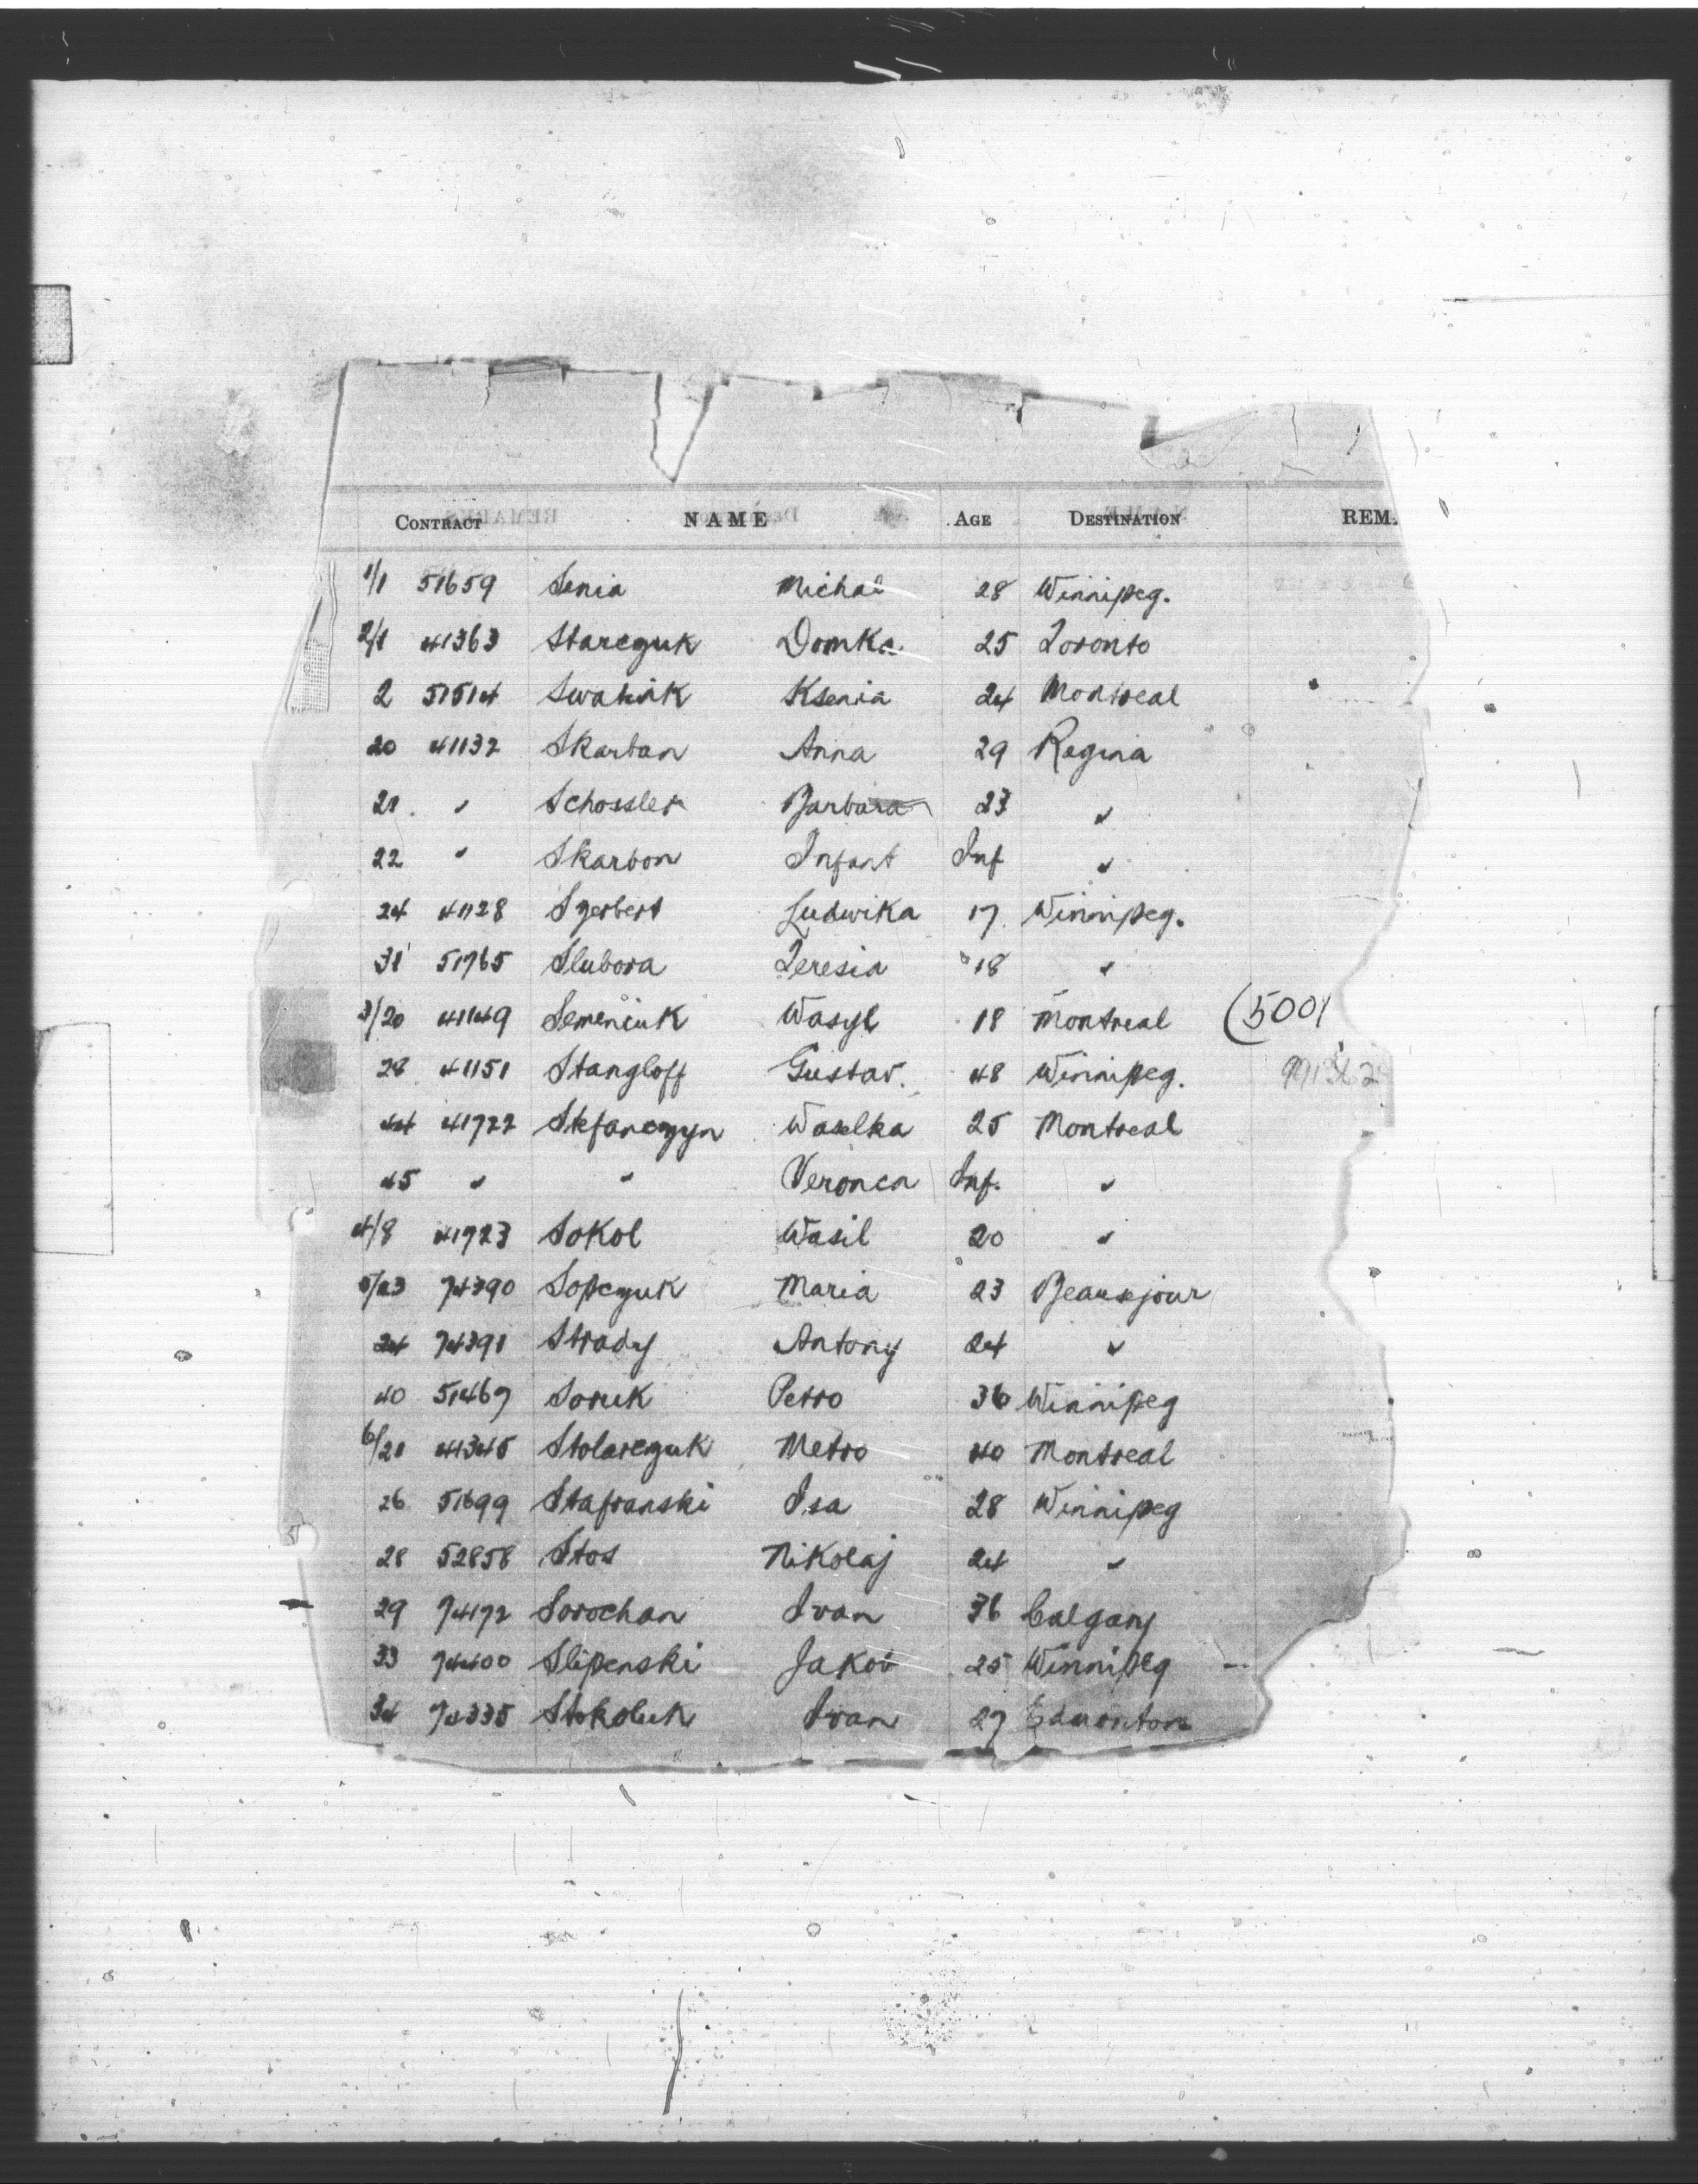 CONTRACT NAME AGE DESTINATION REM.
1/1 51659 Senia Michal 28 Winnipeg.
2/1 41363 Starczuk Domka 25 Toronto
2 51514 Swatink Ksenia 24 Montreal
20 41132 Skarban Anna 29 Regina
21. " Schossler Barbara 23 "
22 " Skarbon Infant Inf "
24 41128 Szerbert Ludwika 17 Winnipeg.
31 51765 Slubora Teresia 18 "
3/20 41149 Semeniuk Wasyl 18 Montreal (500)
28 41151 Stangloff Gustav. 48 Winnipeg.
44 41722 Stefanczyn Waselka 25 Montreal
45 " " Veronca Inf. "
4/8 41723 Sokol Wasil 20 "
5/23 74390 Sopczuk Maria 23 Beausejour
24 74391 Strady Antony 24 "
40 51467 Soruk Petro 36 Winnipeg
6/21 41345 Stolarczuk Metro 40 Montreal
26 51699 Stafranski Isa 28 Winnipeg
28 52858 Stos Nikolaj 24 "
29 74172 Sorochan Ivan 36 Calgary
33 74400 Slipenski Jakov 25 Winnipeg
34 74335 Stokoluk Ivan 27 Edmonton